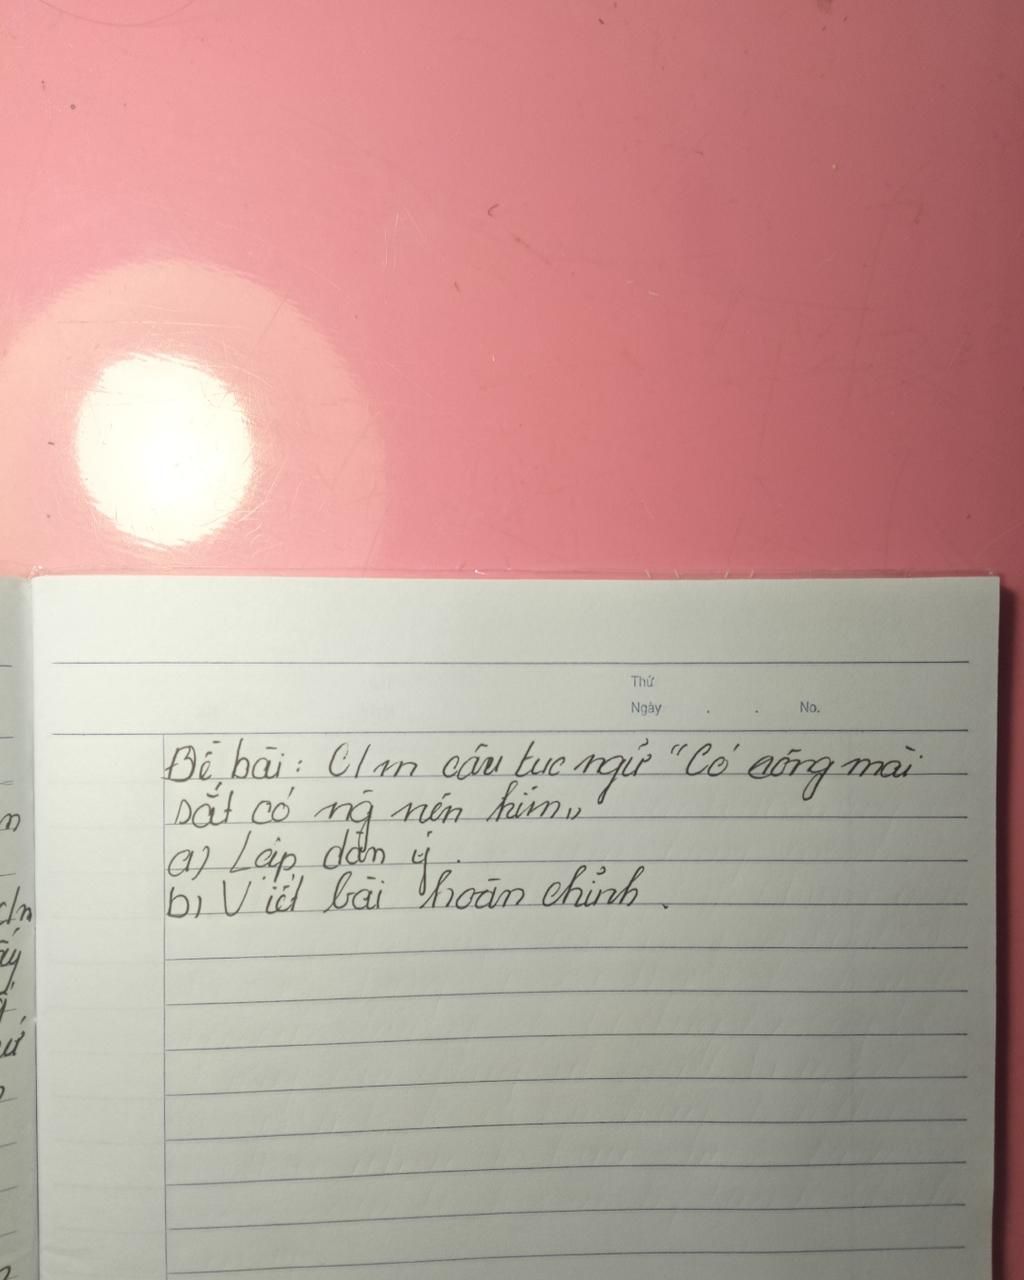 Thứ
Ngày . . No.
Đề bài: C/m câu tục ngữ "Có công mài
sắt có ng nên kim"
a) Lập dàn ý.
b) Viết bài hoàn chỉnh.